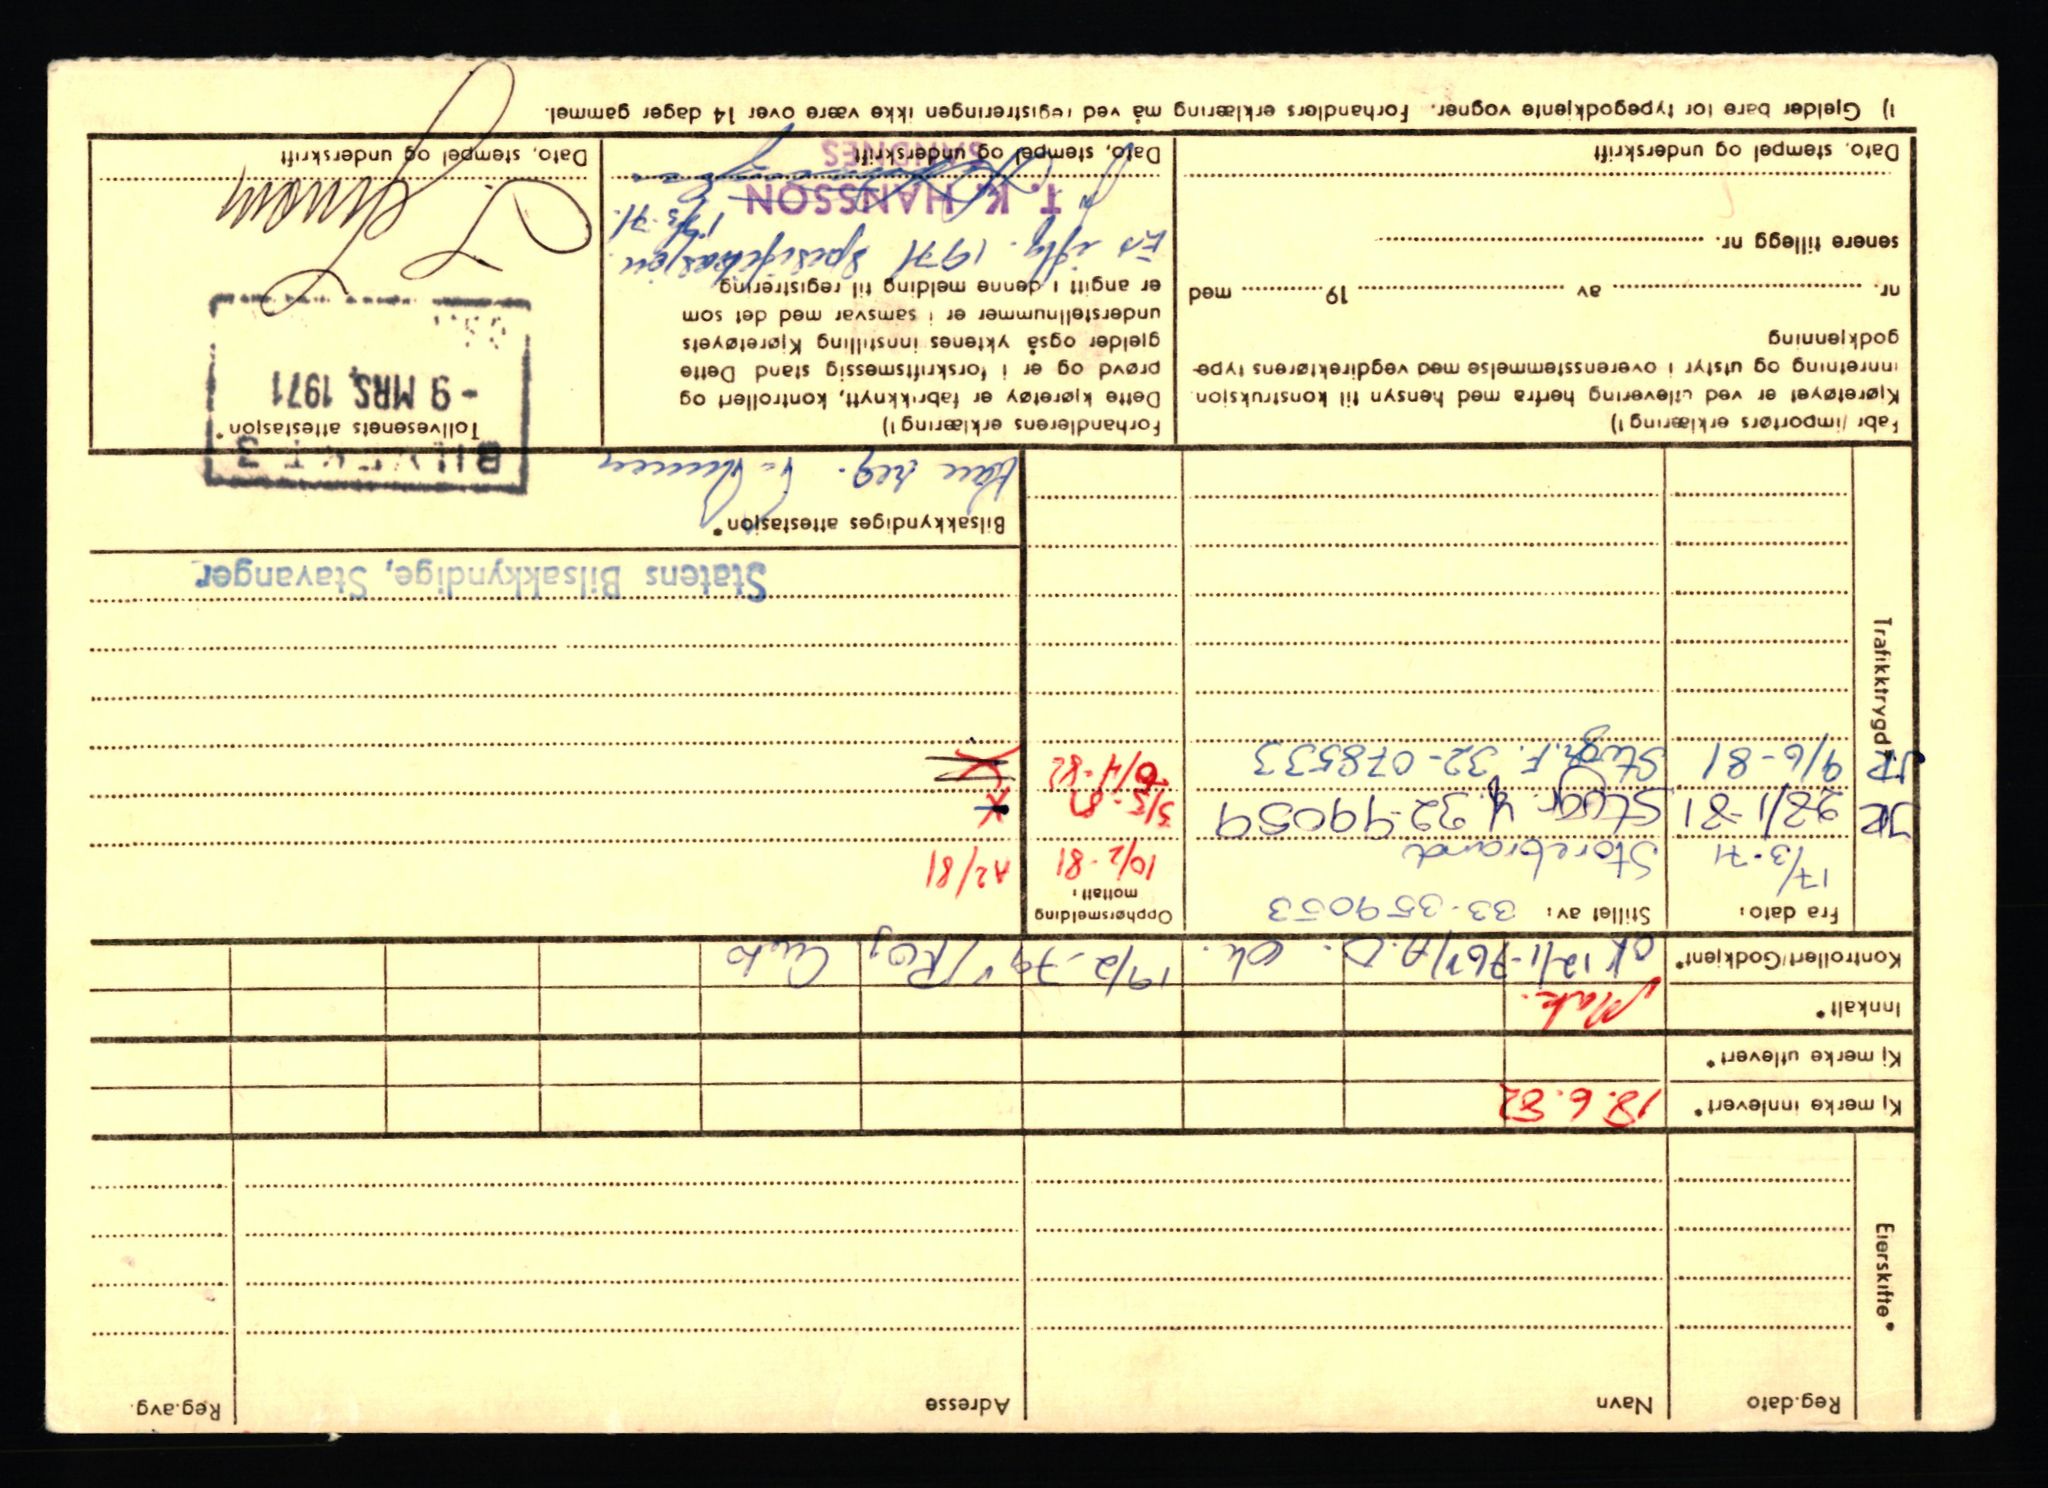 Eierskifte*
Reg.dato
Navn
Adresse
Reg.avg.
Kj merke innlevert*
18.6.82
Kj merke utlevert*
Innkalt*
Mak.
Kontrollert/Godkjent*
ok 12/1-76 Y/A.O. Ok. 19/2-79 Y/Roj
Trafikktrygd
Fra dato:
Stillet av: 33-359053
Opphørsmelding
mottatt:
17/3-71
Storebrand
10/2-81
A2/81
JR 28/1-81
Stvgr. Y. 32-99059
3/5-81
JR 9/6-81
Stvgr. F. 32-078533
6/4-82
Statens Bilsakkyndige, Stavanger
Bilsakkyndiges attestasjon*
Kan reg.
Fabr/importørs erklæring 1)
Kjøretøyet er ved utlevering herfra med hensyn til konstruksjon
innretning og utstyr i overensstemmelse med vegdirektørens type-
godkjenning
nr. av 19 med
senere tillegg nr.
Dato, stempel og underskrift
Forhandlerens erklæring 1)
Dette kjøretøy er fabrikknytt, kontrollert og
prøvd og er i forskriftsmessig stand Dette
gjelder også yktenes innstilling Kjøretøyets
understellnummer er i samsvar med det som
er angitt i denne melding til registrering
Er iflg. 1971 spesifikasjon.
15/3-71.
T. K. HANSSON
SANDNES
Dato, stempel og underskrift
3
Tollvesenets attestasjon*
- 9 MRS. 1971
Dato, stempel og underskrift
1) Gjelder bare for typegodkjente vogner. Forhandlers erklæring må ved registreringen ikke være over 14 dager gammel.